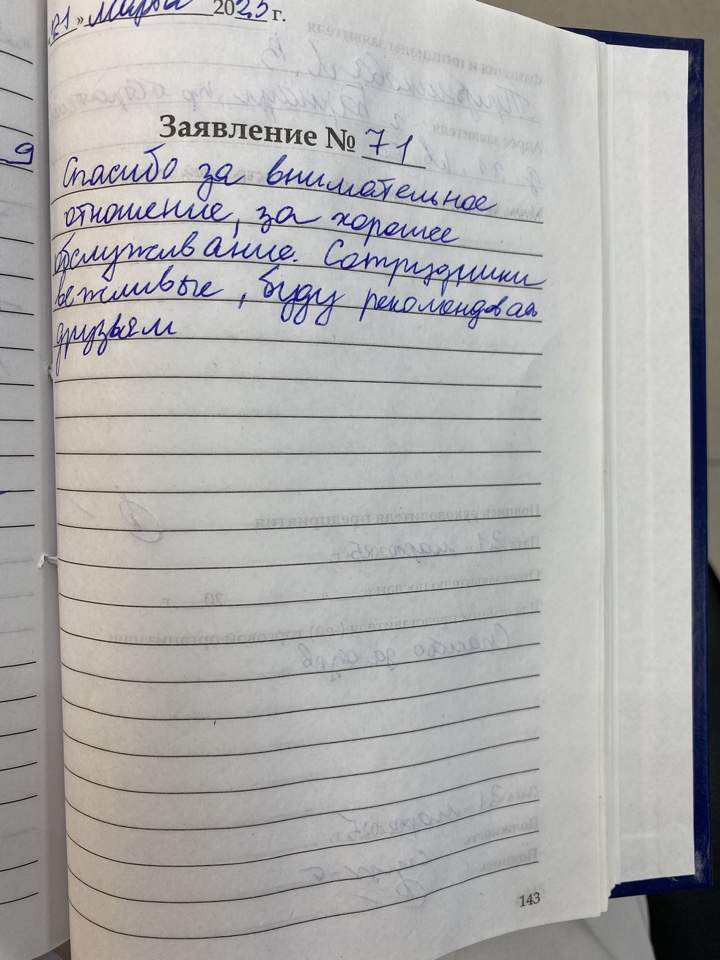 21 » марта 2025 г.
9
Заявление № 71
Спасибо за внимательное
отношение, за хорошее
обслуживание. Сотрудники
вежливые, буду рекомендовать
друзьям
143